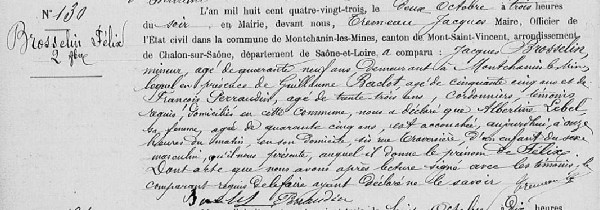 N° 130
Brosselin Félix
2 8bre
L'an mil huit cent quatre-vingt-trois, le deux Octobre à trois heures
du soir, en Mairie, devant nous, Jacques Maire, Officier de
l'État civil dans la commune de Montchanin-les-Mines, canton de Mont-Saint-Vincent, arrondissement
de Chalon-sur-Saône, département de Saône-et-Loire, a comparu : Jacques Brosselin
mineur, agé de quarante neuf ans Demeurant à Montchanin les Mines
lequel en présence de Guillaume Badot, agé de Cinquante cinq ans et de
François Perraudin, agé de trente trois ans Cordonniers, témoins
requis, domiciliés en cette Commune, nous a déclaré que Albertine Lebel
sa femme, agée de quarante cinq ans, est accouchée, aujourd'hui, à onze
heures du matin, en son domicile, sis rue Traversière D'un enfant du sexe
masculin, qu'il nous présente, auquel il donne le prénom de Félix
Dont acte que nous avons après lecture signé avec les témoins, le
comparant requis de le faire ayant déclaré ne le savoir